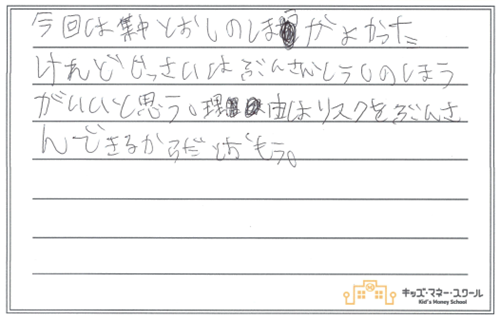 今回は集中とおしのほうがよかった
けれどじっさいはぶんさんとうしのほう
がいいと思う。理由はリスクをぶんさ
んできるからだとおもう。
キッズ・マネー・スクール
Kid's Money School